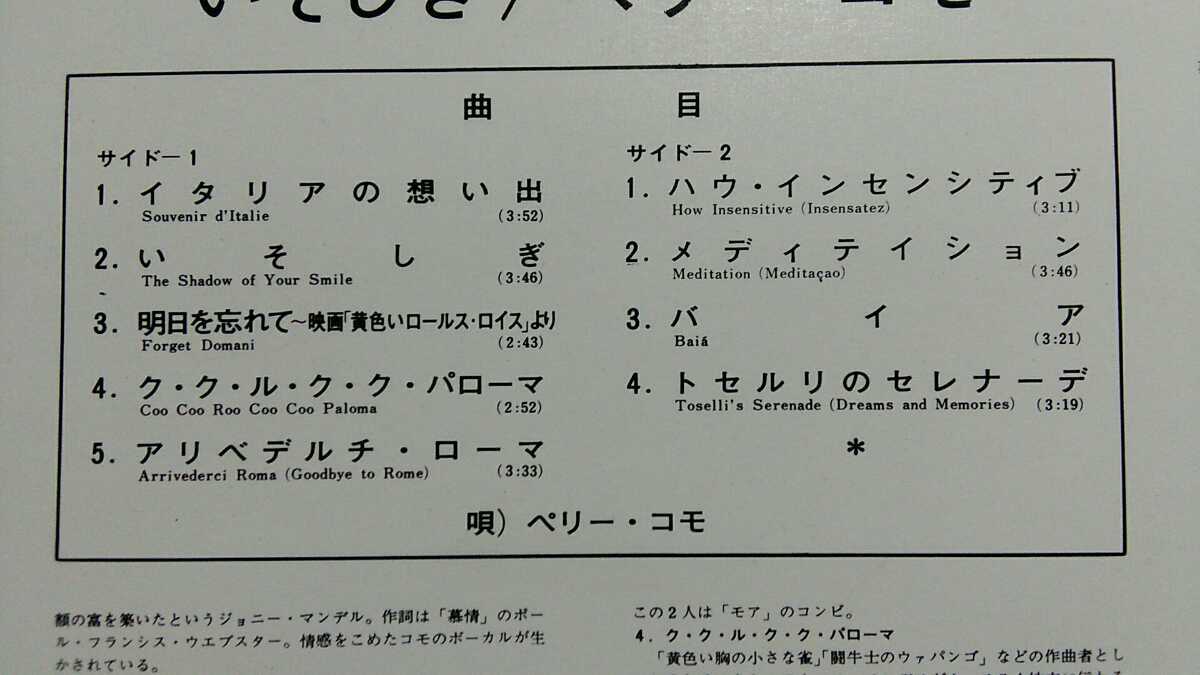 いそしぎ/ペリー・コモ
曲目
サイド―1
1. イタリアの想い出
Souvenir d'Italie (3:52)
2. いそしぎ
The Shadow of Your Smile (3:46)
3. 明日を忘れて～映画「黄色いロールス・ロイス」より
Forget Domani (2:43)
4. ク・ク・ル・ク・ク・パローマ
Coo Coo Roo Coo Coo Paloma (2:52)
5. アリベデルチ・ローマ
Arrivederci Roma (Goodbye to Rome) (3:33)
サイド―2
1. ハウ・インセンシティブ
How Insensitive (Insensatez) (3:11)
2. メディテイション
Meditation (Meditaçao) (3:46)
3. バイア
Baiá (3:21)
4. トセルリのセレナーデ
Toselli's Serenade (Dreams and Memories) (3:19)
*
唄) ペリー・コモ
額の富を築いたというジョニー・マンデル。作詞は「慕情」のポー
ル・フランシス・ウエブスター。情感をこめたコモのボーカルが生
かされている。
この2人は「モア」のコンビ。
4. ク・ク・ル・ク・ク・パローマ
「黄色い胸の小さな雀」「闘牛士のウァパンゴ」などの作曲者とし